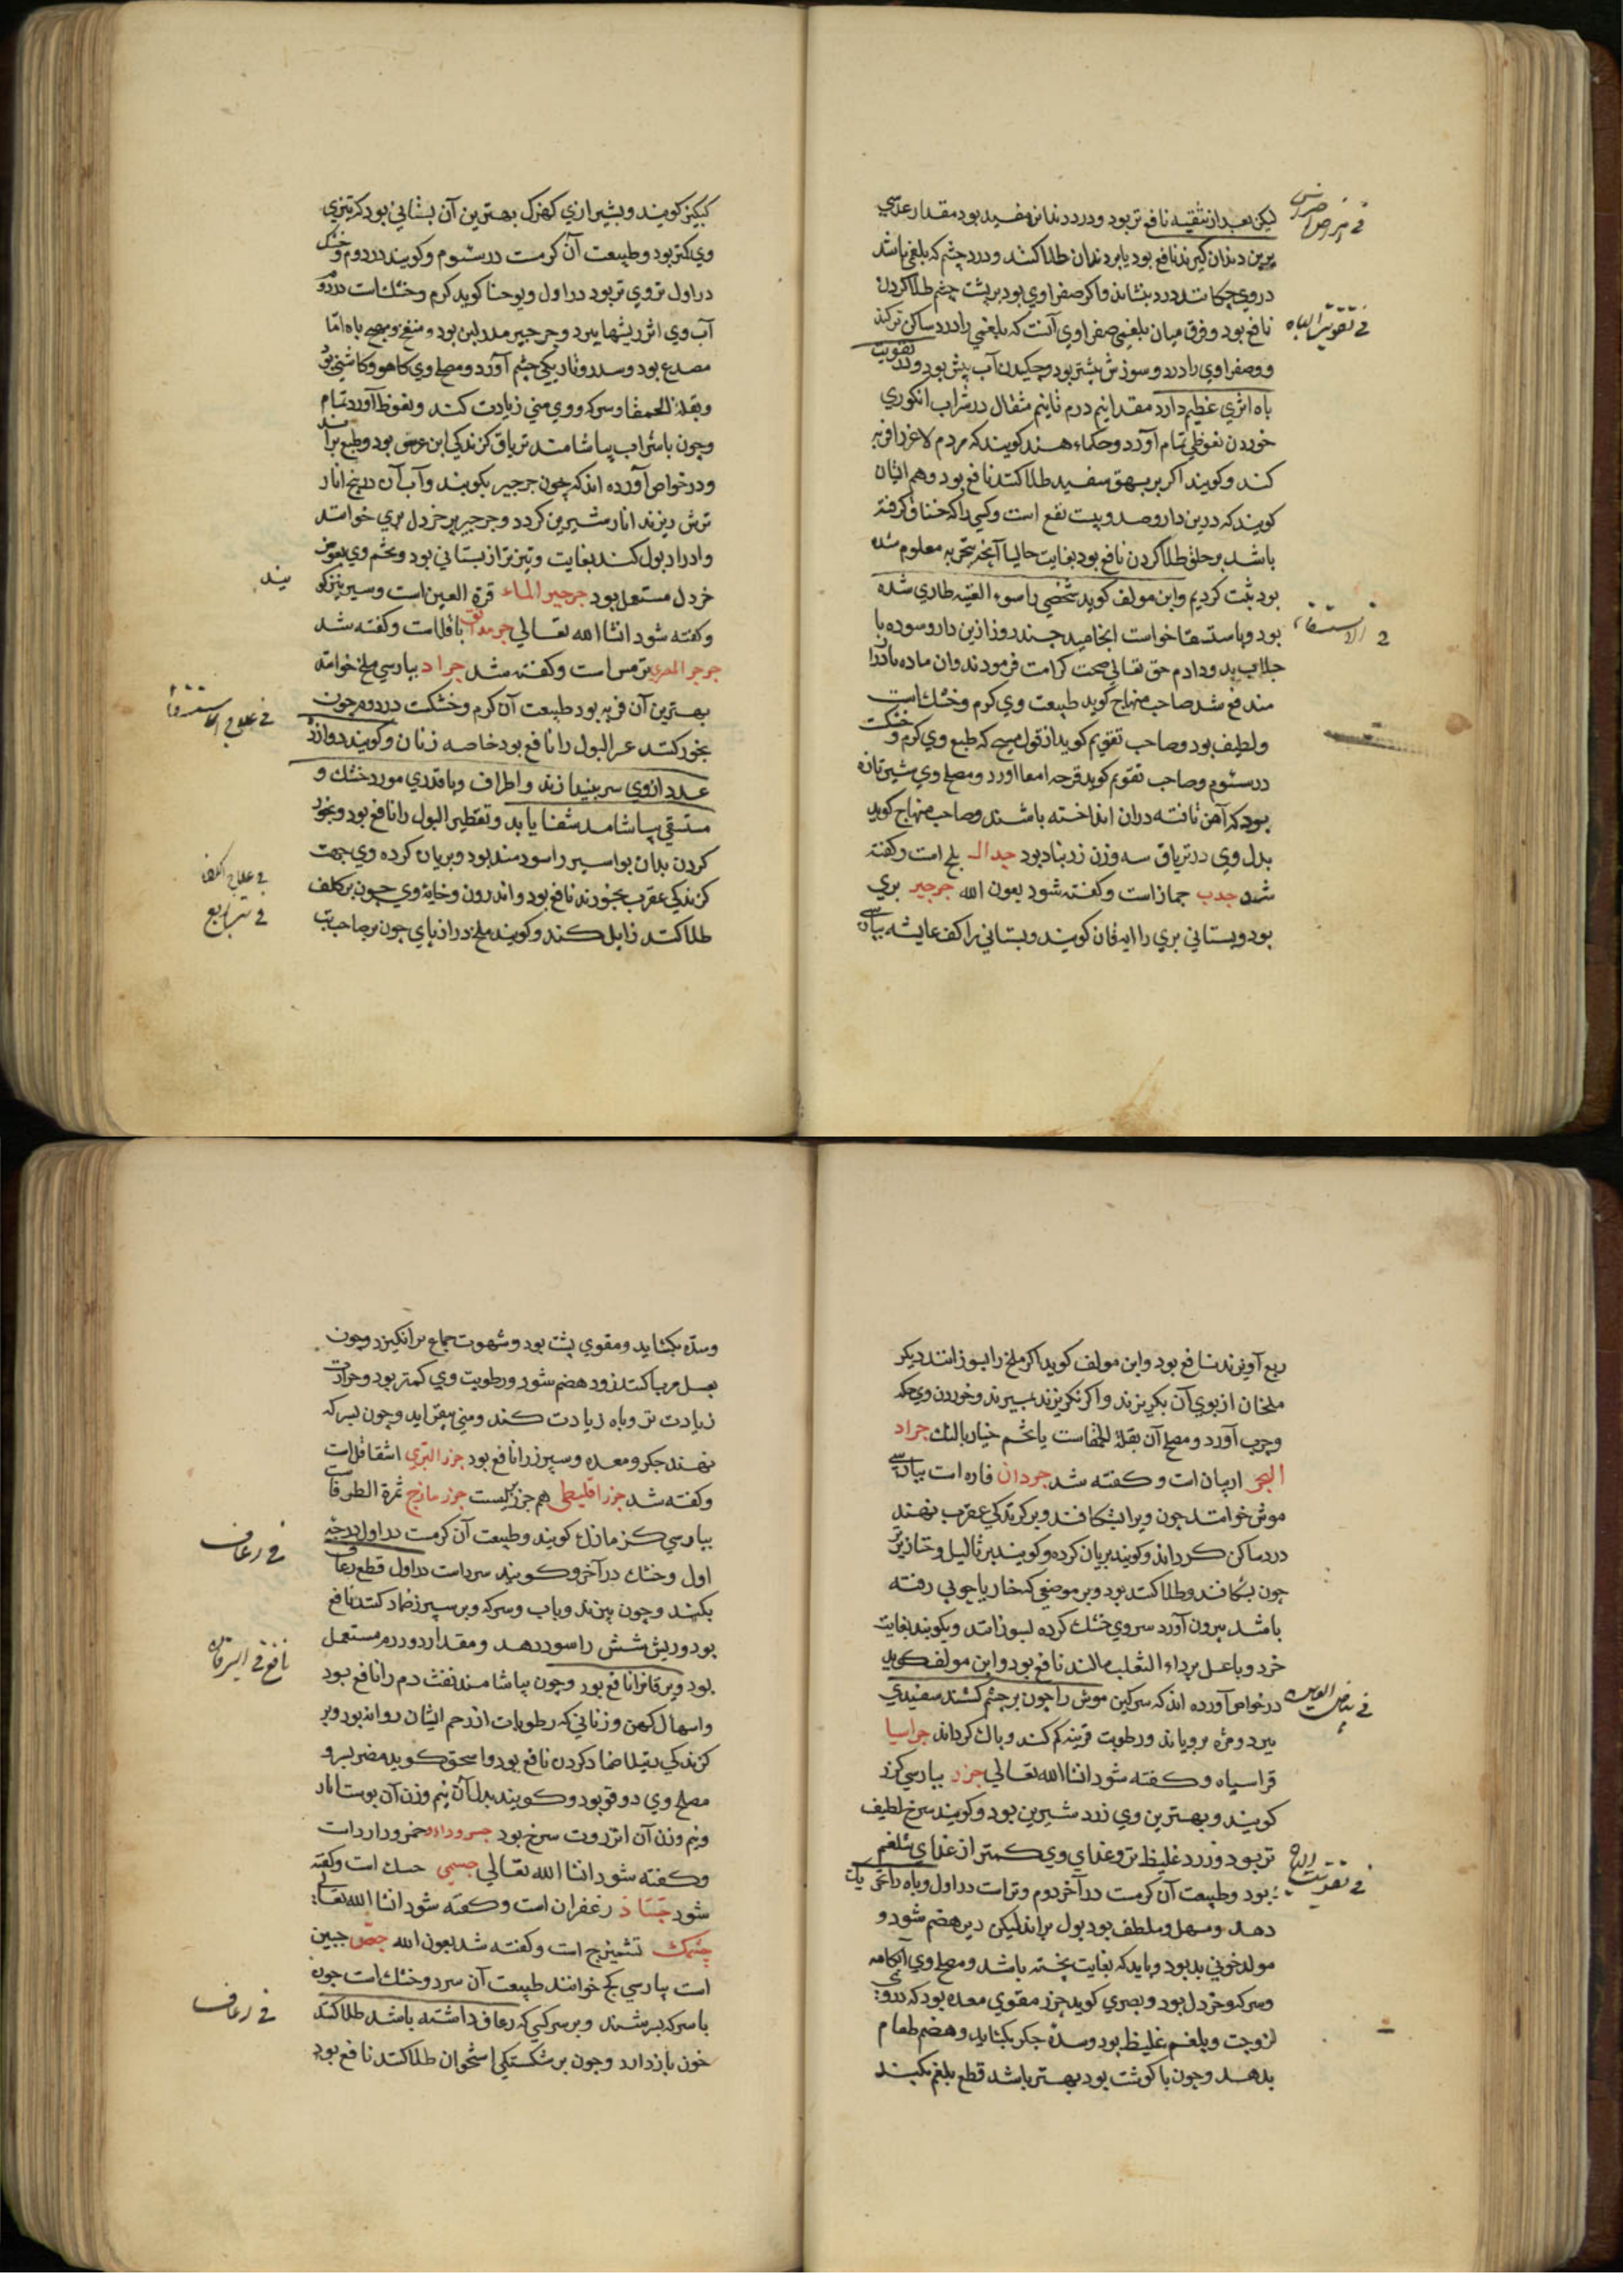 لیکن بعد از تنقیه نافع تر بود ودرد دندانرا مفید بود مقدار عدسی
برین دندان کیرند نافع بود یا بر دندان طلا کنند ودرد چشم که بلغمی باشد
در وی چکانند درد بنشاند واکر صفراوی بود بر پشت چشم طلا کردن
نافع بود وفرق میان بلغمی وصفراوی آنست که بلغمی را درد ساکن تر کند
وصفراوی را درد وسوزش بیشتر بود وچکیدن آب بیش بود ودر تقویت
باه اثری عظیم دارد مقدار نیم درم تا نیم مثقال در شراب انکوری
خوردن نعوظی تمام آورد وحکماء هند کویند که مردم لاغر را فربه
کند وکویند اکر بر بهق سفید طلا کنند نافع بود وهم ایشان
کویند که درین دارو صد وبیست نفع است وکسی را که خناق کرفته
باشد بر حلق طلا کردن نافع بود بغایت حالیا آنچه بتجربه معلوم شده
بود ثبت کردیم وابن مولف کوید شخصی را سوء القنیه طاری شده
بود وباستسقا خواست انجامید چند روز ازین دارو سوده با
جلاب بدو دادم حق تعالی صحت کرامت فرمودند وآن ماده بادرار
مندفع شد صاحب منهاج کوید طبیعت وی کرم وخشک است
ولطیف بود وصاحب تقویم کوید از قول مسیح که طبع وی کرم وخشکست
در سئوم وصاحب تقویم کوید قرحه امعا آورد ومصلح وی شیر تازه
بود که آهن تافته دران انداخته باشند وصاحب منهاج کوید
بدل وی در تریاق سه وزن زرنباد بود جدال بلح است وکفته
شد جدب جماز است وکفته شود بعون الله جرجیر بری
بود وبستانی بری را ایهقان کویند وبستانی را کف عایشه بپارسی
فی تقویت الباه
فی الاستسقاء
کیکیز کویند وبشیرازی کهزک بهترین آن بستانی بود که تیزی
وی کمتر بود وطبیعت آن کرمست در سئوم وکویند در دوم وخشک
در اول تر وی تر بود در اول ویوحنا کوید کرم وخشک است در دوم
آب وی اثر ریشها ببرد وجرجیر مدر لبن بود ومنفخ ومهیج باه اما
مصدع بود وسدر وتاریکی چشم آورد ومصلح وی کاهو وکاسنی بود
وبقلة الحمقا وسرکه ووی منی زیادت کند ونعوظ آورد تمام
وچون با شراب بیاشامند تریاق کزندکی ابن عرس بود وطبع براند
ودر خواص آورده اند که چون جرجیر بکوبند وآب آن در بیخ انار
ترش ریزند انار شیرین کردد وجرجیر بر خردل بری خوانند
وادرار بول کند بغایت وتیزتر از بستانی بود وتخم وی بعوض
خردل مستعمل بود جرجیر الماء قرة العین است وسیر نیز کو یند
وکفته شود انشا الله تعالی جرمدانق باقلاست وکفته شد
جرجر المصری ترمس است وکفته شد جراد بپارسی ملخ خوانند
بهترین آن فربه بود طبیعت آن کرم وخشکست در دوم چون
بخور کنند عسر البول را نافع بود خاصه زنان وکویند دوازده
عدد از وی سر بیندازند واطراف وبا قدری مورد خشک و
مستسقی بیاشامد شفا یابد وتقطیر البول را نافع بود وبخور
کردن بدان بواسیر را سودمند بود وبریان کرده وی جهت
کزندکی عقرب بخورند نافع بود واندرون وخایه وی چون بر کلف
طلا کنند زایل کند وکویند ملخ دراز پای چون بر صاحب تب
فی علاج الاستسقاء
فی علاج الکلف
فی تب ربع
ربع آویزند نافع بود وابن مولف کوید اکر ملخ را بسوزانند دیکر
ملخان از بوی آن بکریزند واکر نکریزند بمیرند وخوردن وی حکه
وجرب آورد ومصلح آن بقلة الحمقاست یا تخم خیار بالنک جراد
البحر اربیان است وکفته شد جردان فاره است بپارسی
موش خوانند چون ویرا بشکافند وبر کزندکی عقرب نهند
درد ساکن کرداند وکویند بریان کرده وکویند بر ثآلیل وخنازیر
چون بشکافند وطلا کنند بود وبر موضعی که خار یا چوبی رفته
باشد بیرون آورد سر وی خشک کرده بسوزانند وبکوبند بغایت
خرد وبا عسل بر داء الثعلب مالند نافع بود وابن مولف کوید
در خواص آورده اند که سرکین موش را چون بر چشم کشند سفیدی
ببرد ومژه برویاند ورطوبت قرنیه کم کند وپاک کرداند جراسیا
قراسیا ه وکفته شود انشا الله تعالی جزر بپارسی کزر
کویند وبهترین وی زرد شیرین بود وکویند سرخ لطیف
تر بود وزرد غلیظ تر وغذای وی کمتر از غذای شلغم
بود وطبیعت آن کرمست در آخر دوم وتر است در اول وباه را تحریک
دهد ومسهل وملطف بود بول براند لیکن دیر هضم شود و
مولد خونی بد بود وباید که بغایت پخته باشد ومصلح وی آبکامه
وسرکه وخردل بود وبصری کوید جزر مقوی معده بود که در وی
لزوجت وبلغم غلیظ بود وسده جکر بکشاید وهضم طعام
بدهد وچون با کوشت بود بهتر باشد قطع بلغم بکند
فی بیاض العین
فی تقویت الباه
وسده بکشاید ومقوی پشت بود وشهوت جماع برانکیزد وچون
بعسل مربا کنند زود هضم شود ورطوبت وی کمتر بود وحرارت
زیادت تر وباه زیادت کند ومنی بیفزاید وچون بسرکه
نهند جکر ومعده وسپرز را نافع بود جزر البری اشقاقل است
وکفته شد جزر اقلیطی هم جزر کلیست جزر مازج ثمرة الطرفاست
بپارسی کزمازک کویند وطبیعت آن کرمست در اول درجه
اول وخشک در آخر وکویند سرد است در اول قطع رعاف
بکند وچون بپزند وبآب وسرکه وبر سپرز ضماد کنند نافع
بود وریش شش را سود دهد ومقدار دو درم مستعمل
بود ویرقانرا نافع بود وچون بیاشامند نفث دم را نافع بود
واسهال کهن وزنانی که رطوبات از رحم ایشان روانه بود وبر
کزندکی رتیلا ضماد کردن نافع بود واسحق کوید مضر بسر و
مصلح وی دوقو بود وکویند بدل آن نیم وزن آن پوست انار
ونیم وزن آن انزروت سرخ بود جسرودارو خسرودار است
وکفته شود انشا الله تعالی جسمی حسک است وکفته
شود جساد زعفران است وکفته شود انشا الله تعالی
چشمک تشمیزج است وکفته شد بعون الله جص جبسین
است بپارسی کچ خوانند طبیعت آن سرد وخشک است چون
با سرکه بسرشند وبر سر کسی که رعاف داشته باشد طلا کنند
خون باز دارد وچون بر شکستکی استخوان طلا کنند نافع بود
فی رعاف
نافع فی الیرقان
فی رعاف